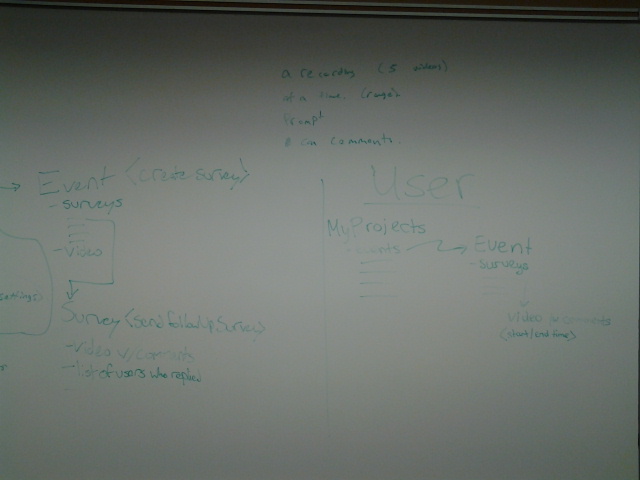 a recording (5 videos)
at a time. (range)
Prompt
can comments.
Event <create survey>
- surveys
- Video
settings)
Survey <send followup survey>
- Video w/comments
- list of users who replied
User
My Projects
Event
- surveys
video w comments
(start/end time)